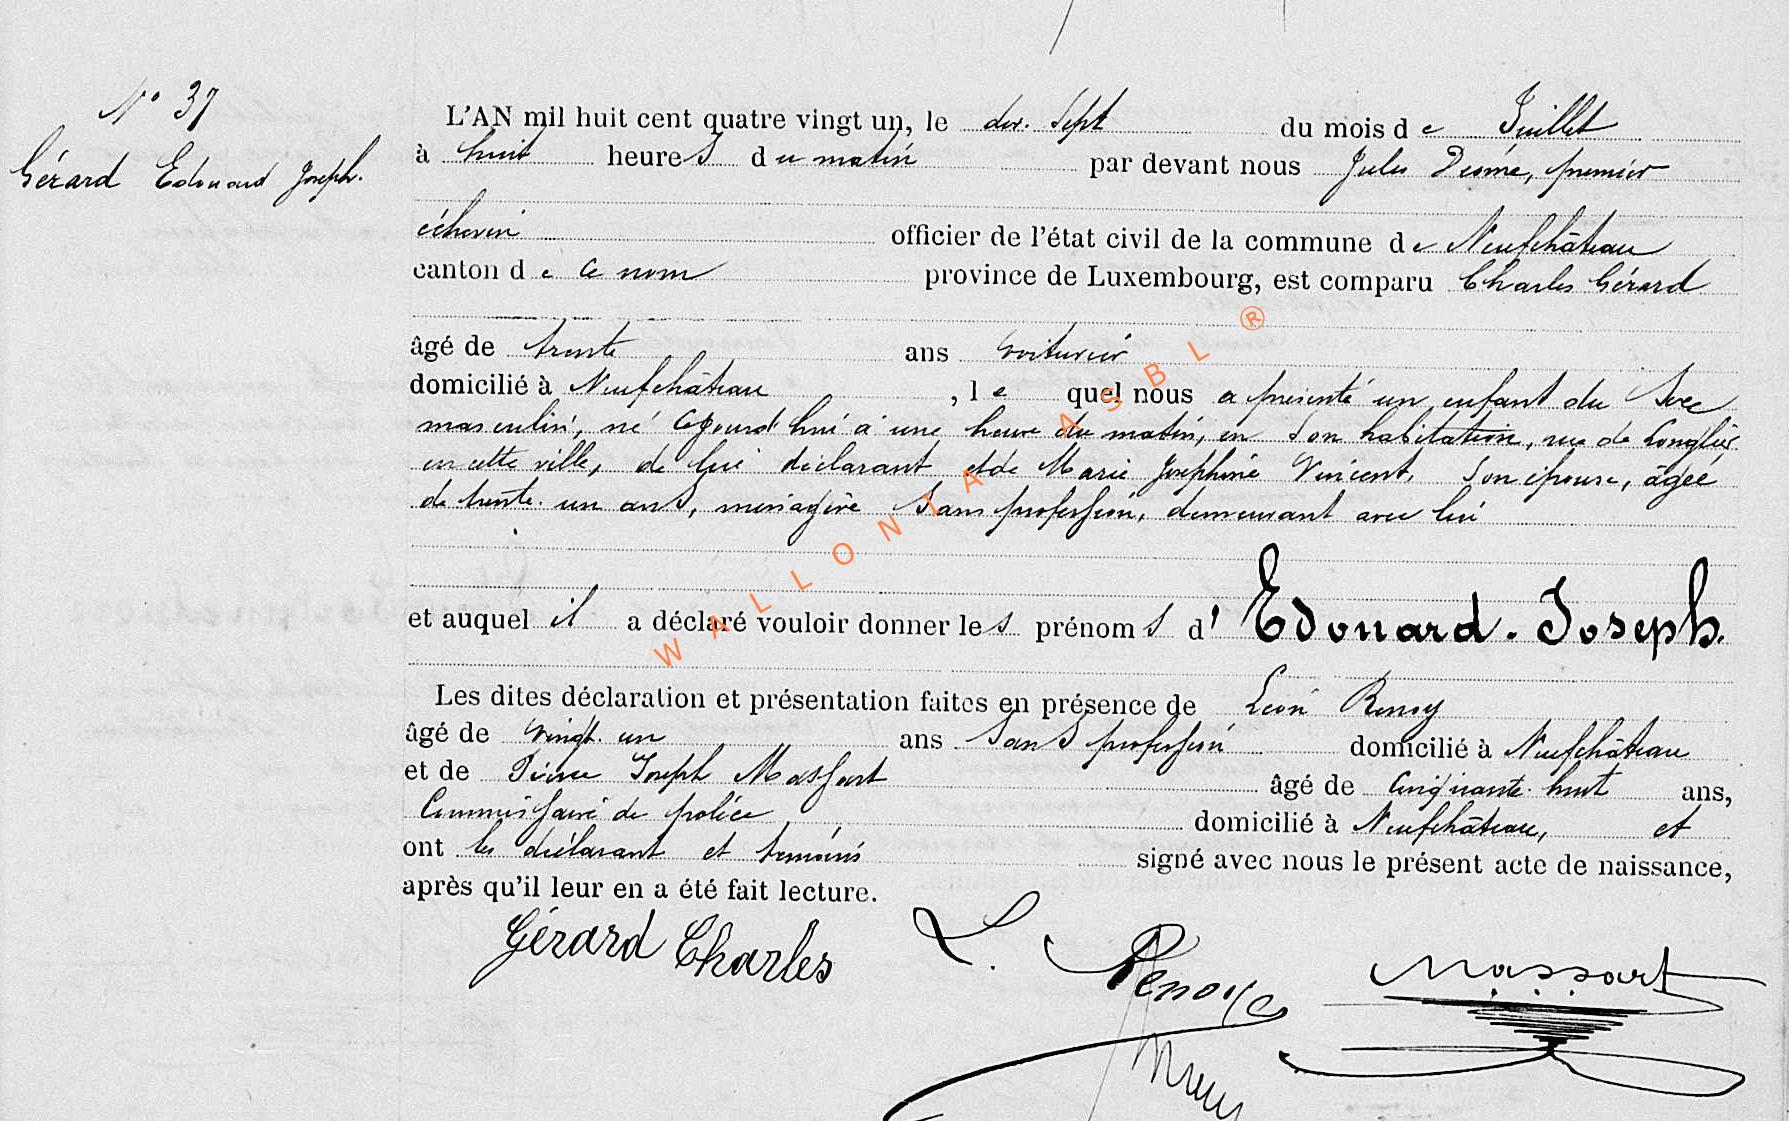 N° 37
Gérard Edouard Joseph.
L'AN mil huit cent quatre vingt un, le dix. Sept du mois de Juillet
à huit heures du matin par devant nous Jules premier
échevin officier de l'état civil de la commune de Neufchâteau
canton de ce nom province de Luxembourg, est comparu Charles Gérard
âgé de trente ans voiturier
domicilié à Neufchâteau, lequel nous a présenté un enfant du Sexe
masculin, né aujourd'hui à une heure du matin, en Son habitation, rue de Longlier
en cette ville, de lui déclarant et de Marie Joséphine Vincent, Son épouse, âgée
de trente. un ans, ménagère Sans profession, demeurant avec lui
et auquel il a déclaré vouloir donner les prénoms d' Edouard. Joseph.
Les dites déclaration et présentation faites en présence de Léon Renoy
âgé de vingt. un ans Sans profession domicilié à Neufchâteau
et de Pierre Joseph Massart âgé de Cinquante. huit ans,
Commissaire de police domicilié à Neufchâteau, et
ont les déclarant et témoins signé avec nous le présent acte de naissance,
après qu'il leur en a été fait lecture.
Gérard Charles
L. Renoy
Massart
WALLONIA ASBL ®